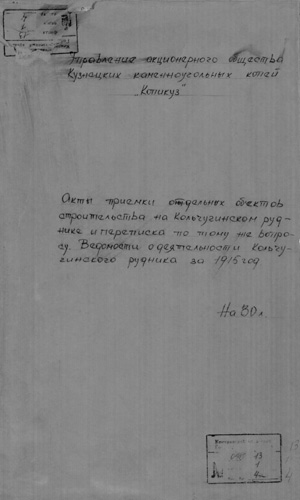 Управление акционерного общества
Кузнецких каменноугольных копей
„Копикуз"
Акты приемки отдельных объектов
строительства на Кольчугинском руд-
нике и переписка по тому же вопро-
су. Ведомости о деятельности Кольчу-
гинского рудника за 1915 год
На 30 л.
13
1
4а